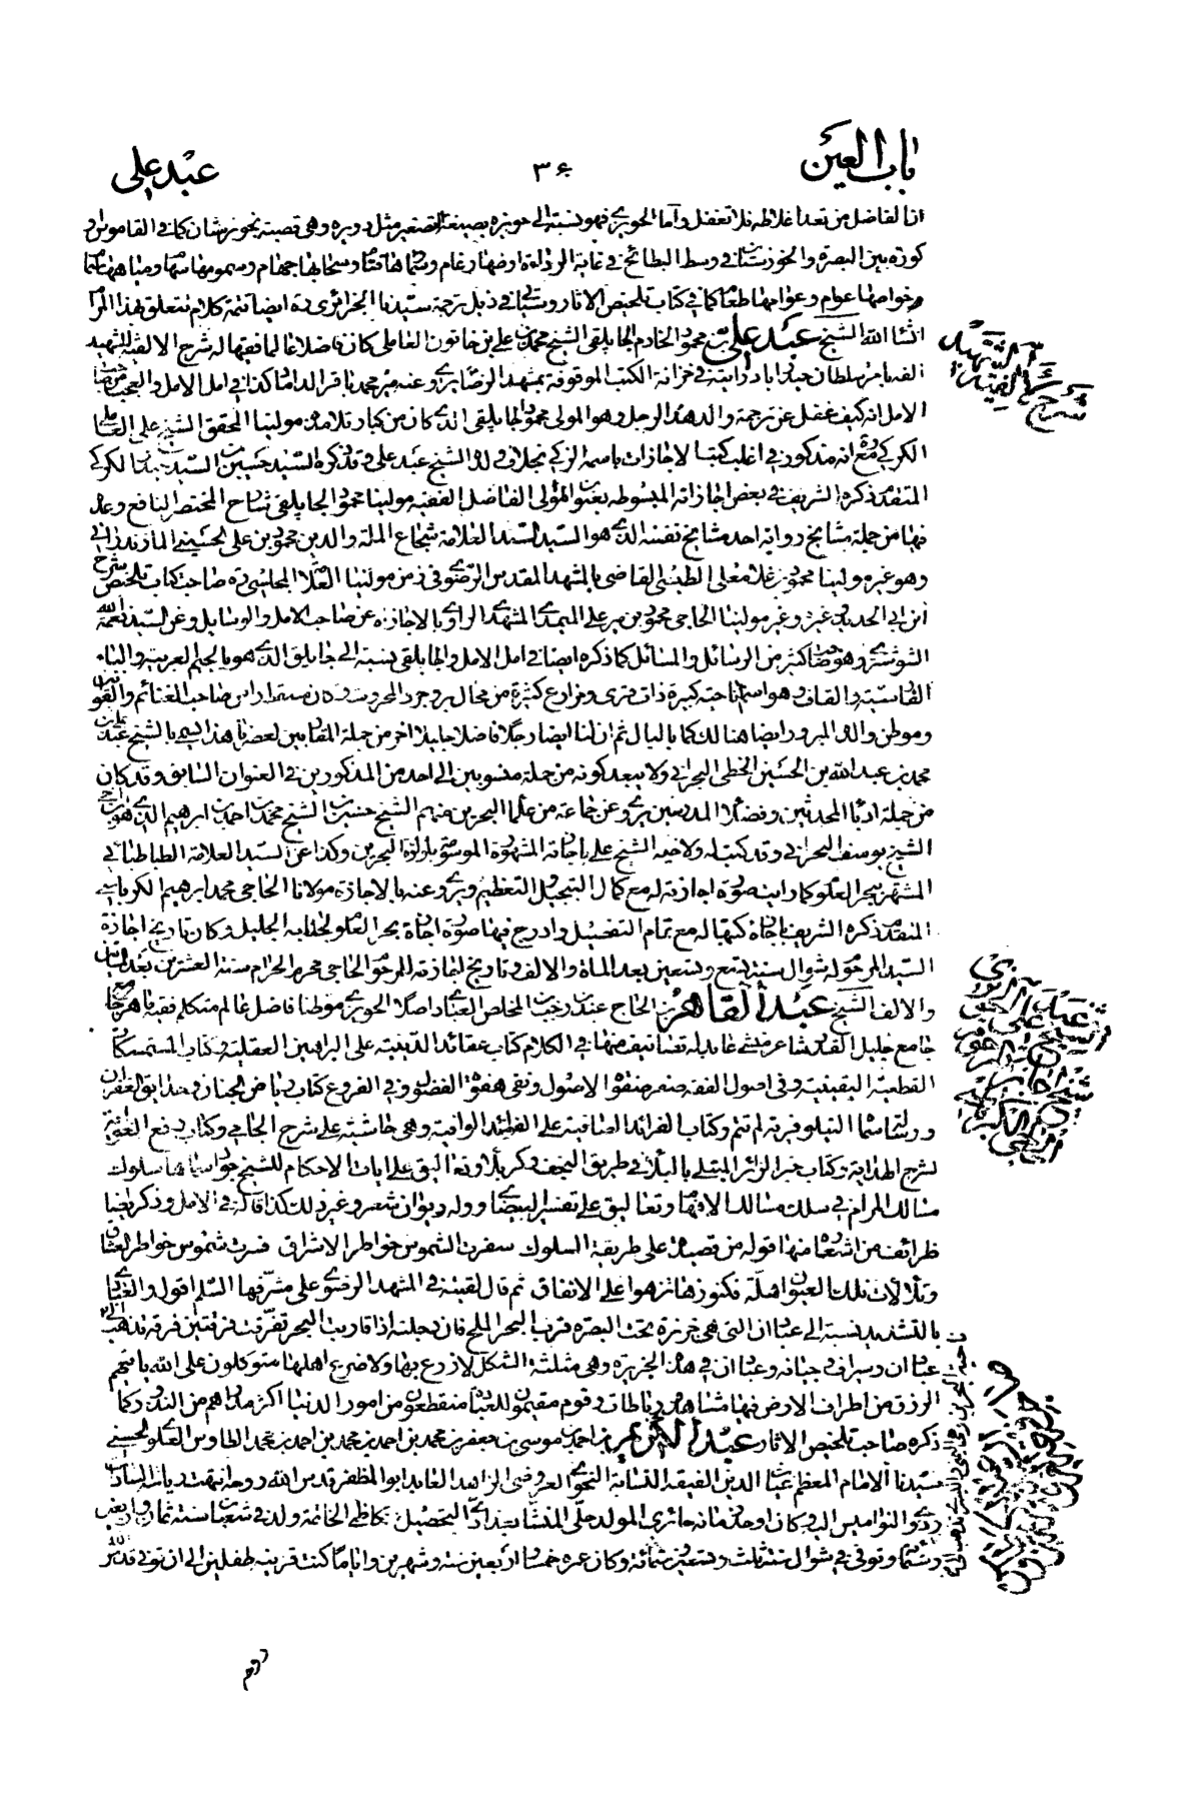 باب العين
٣٤٠
عبد علي
ان الفاضل من تعد اغلاطه فلا تغفل واما الحويزي فهو نسبة الى حويزه بصيغة التصغير مثل دويره وهى قصبة بخوزستان كما فى القاموس او
كورة بين البصره والخوزستان فى وسط البطائح فى غاية الرداءة ارضها رغام وسمائها قتام وسحابها جهام وسمومها سهام ومياهها سمام
وخواصها عوام وعوامها طغام كما فى كتاب تلخيص الاثار وسياتى فى ذيل ترجمة سيدنا الجزائرى ره ايضا تتمة كلام متعلق بهذا المرام
انشاء الله الشيخ عبد على بن محمود الخادم الجابلقى الشيخ محمد بن على بن خاتون العاملى كان فاضلا عالما فقيها له شرح الالفية للشهيد
الفه بامر سلطان حيدراباد رايته فى خزانة الكتب الموقوفة بمشهد الرضا يروى عنه مير محمد باقر الداماد كذا فى امل الامل والعجب من صاحب
الامل انه كيف غفل عن ترجمة والد هذا الرجل وهو المولى محمود الجابلقى الذى كان من كبار تلامذة مولينا المحقق الشيخ على العاملى
الكركى ره مع انه مذكور فى اغلب كتب الاجازات باسمه الزكى نجلافى ولده الشيخ عبد على وقد ذكره السيد حسين بن السيد حيدر الكركى
المتقدم ذكره الشريف فى بعض اجازاته المبسوطه بعنوان المولى الفاضل الفقيه مولينا محمود الجابلقى شارح المختصر النافع وعد
فيها من جملة مشايخ رواية احد مشايخ نفسه الذى هو السيد السند العلامة شجاع الملة والدين محمود بن على الحسينى المازندرانى
وهو غير مولينا محمود بن غلامعلى الطبسى القاضى بالمشهد المقدس الرضوى فى زمن مولينا العلامة المجلسى ره صاحب كتاب تلخيص شرح
ابن ابى الحديد وغيره وغير مولينا الحاجى محمود بن مير على الميمدى المشهدى الراوى بالاجازة عن صاحب الامل والوسايل وعن السيد نعمة الله
الشوشترى وهو صاحب كثير من الرسائل والمسائل كما ذكره ايضا فى امل الامل والجابلقى نسبة الى جابلق الذى هو بالجيم العربية والباء
الفارسية والقاف وهو اسم ناحية كبيرة ذات قرى ومزارع كثيرة من محال بروجرد المحروسة وكان مسقط راس صاحب الغنائم والقوانين
وموطن والده المبرور ايضا هنالك كما بالبال ثم ان لنا ايضا رجلا فاضلا جليلا اخر من جملة المقاربين لعصرنا هذا يسمى بالشيخ عبد على بن
محمد بن عبد الله بن الحسين الخطى البحرانى ولا يبعد كونه من جملة منسوبين الى احد من المذكورين فى العنوان السابق وقد كان
من جملة ادباء المحدثين وفضلاء المدرسين يروى عن جماعة من علماء البحرين منهم الشيخ حسين بن الشيخ محمد بن احمد بن ابرهيم الذى هو ابن اخى
الشيخ يوسف البحرانى وقد كتب له ولاخيه الشيخ على باجازته المشهورة الموسومة بلولوة البحرين وكذا عن السيد العلامة الطباطبائى
المشتهر ببحر العلوم كما رايت صورة اجازته له مع كمال التبجيل والتعظيم ويروى عنه بالاجازة مولانا الحاجى محمد ابرهيم الكرباسى
المتقدم ذكره الشريف باجازة كتبها له مع تمام التفضيل وادرج فيها صورة اجازة بحر العلوم لجنابه الجليل وكان تاريخ اجازة
السيد المرحوم له شوال سنة تسع وتسعين بعد المأة والالف وتاريخ اجازته للمرحوم الحاجى محرم الحرام سنة العشرين بعد المأتين
والالف الشيخ عبد القاهر بن الحاج عبد بن رجب بن المخلص العبادى اصلا الحويزى موطنا فاضل عالم متكلم فقيه ماهر جامع
جامع جليل القدر شاعر منشئ عابد له تصانيف منها فى الكلام كتاب عقائد الدينية على البراهين العقلية وكتاب المستمسكات
القطعية اليقينية وفى اصول الفقه صغير صفوة الاصول ونفى هفوة الفضول وفى الفروع كتاب رياض الجنان وحدايق الغفران
ورسالة سماها النيلوفرية لم تتم وكتاب الفرائد الصافية على الفوائد الوافية وهى حاشية على شرح الجامى وكتاب رفع الغواية
لشرح الهداية وكتاب خير الزائر المبتلى بالبلاء فى طريق النجف وكربلاء وتعاليق على ايات الاحكام للشيخ جواد سماها سلوك
مسالك المرام فى سلك مسالك الافهام وتعاليق على تفسير البيضاوى وله ديوان شعر وغير ذلك كذا قاله فى الامل وذكر ايضا
ظرائف من اشعاره منها قوله من قصيدة على طريقة السلوك سفرت الشموس خواطر الاشراق فسرت شموس خواطر العشاق
وتلالات تلك العيون اهلة فكنوزها تزهوا على الانفاق ثم قال لقيته فى المشهد الرضوى على مشرفها السلم اقول والعبادى
بالتشديد نسبة الى عبادان التى هى جزيرة تحت البصرة قرب البحر الملح فان دجلته اذا قاربت البحر تفرقت فرقتين فرقة تذهب الى
عبادان وسيراف وجنابة وعبادان فى هذه الجزيرة وهى مثلثة الشكل لا زرع بها ولا ضرع اهلها متوكلون على الله ياتيهم
الرزق من اطراف الارض فيها مشاهد ورباطات وقوم مقيمون للعبادة منقطعون من امور الدنيا اكثر مدارهم من النذور كما
ذكره صاحب تلخيص الاثار عبد الكريم بن احمد بن موسى بن جعفر بن محمد بن احمد بن محمد بن احمد بن محمد الطاوس العلوى الحسينى
سيدنا الامام المعظم غياث الدين الفقيه النسابة النحوى العروضى الزاهد العابد ابو المظفر قدس الله روحه انتهت رياسة السادات
وذوى النواميس اليه وكان اوحد زمانه حائرى المولد حلى المنشأ بغدادى التحصيل كاظمى الخاتمة ولد فى شعبان سنة ثمان واربعين
وستمأة وتوفى فى شوال سنة ثلث وتسعين وستمائة وكان عمره خمسا واربعين سنة وشهرين واياما كنت قرينه طفلين الى ان توفى قدس الله
شرح الالفية للشهيد
روحه